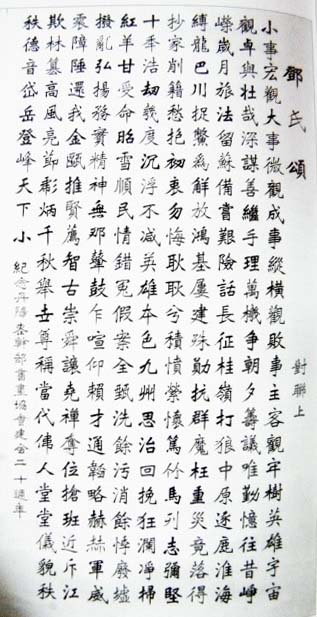 鄧氏頌
對聯上
小事宏觀大事微觀成事縱橫觀敗事主客觀牢樹英雄宇宙
觀卓與壯哉深謀善繼手理萬機爭朝夕籌議唯勤憶往昔崢
嶸歲月旅法留蘇備嘗艱險話長征桂嶺打狼中原逐鹿淮海
縛龍巴川捉鱉為解放鴻基屢建殊勛抗群魔枉重災竟落得
抄家削籍愁抱初衷勿悔耿耿兮積憤縈懷篤竹馬列志彌堅
十年浩劫幾度沉浮不減英雄本色九州思治回挽狂瀾凈掃
紅羊甘受命昭雪順民情錯冤假案全甄洗餘污消餘悸廢墟
撥亂弘揚務實精神無鄧鼙鼓乍喧仰賴才通韜略赫赫軍威
霧障陲還我金甌推賢薦智古崇舜讓堯禪奪位搶班近斥江
欺林墓高風亮節彪炳千秋舉岳尊稱當代佛人堂堂儀貌秩
秩德音岱岳登峰天下小
紀念丹陽老幹部書畫協會建會二十週年